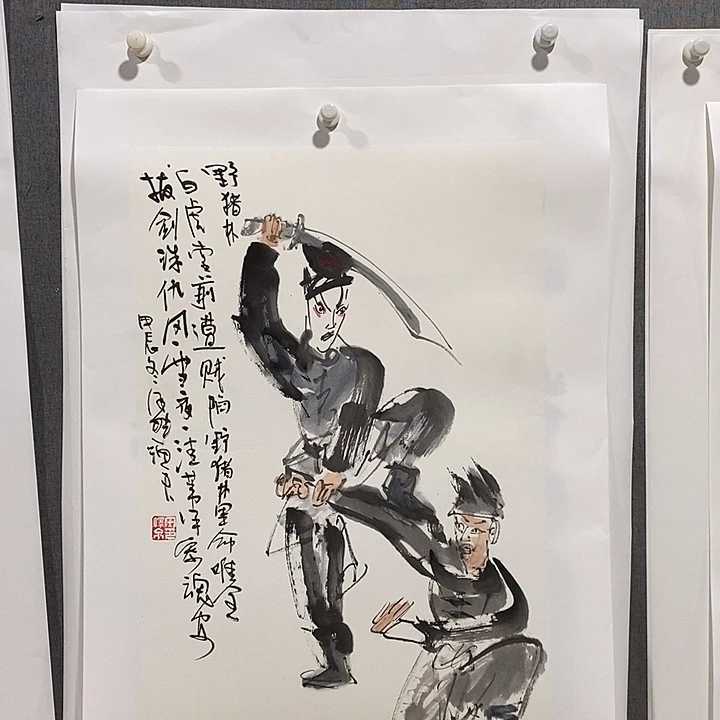 野猪林
白虎堂前遭贼陷野猪林里命唯全
拔剑诛仇风雪夜一洼苇泽寄魂安
甲辰冬